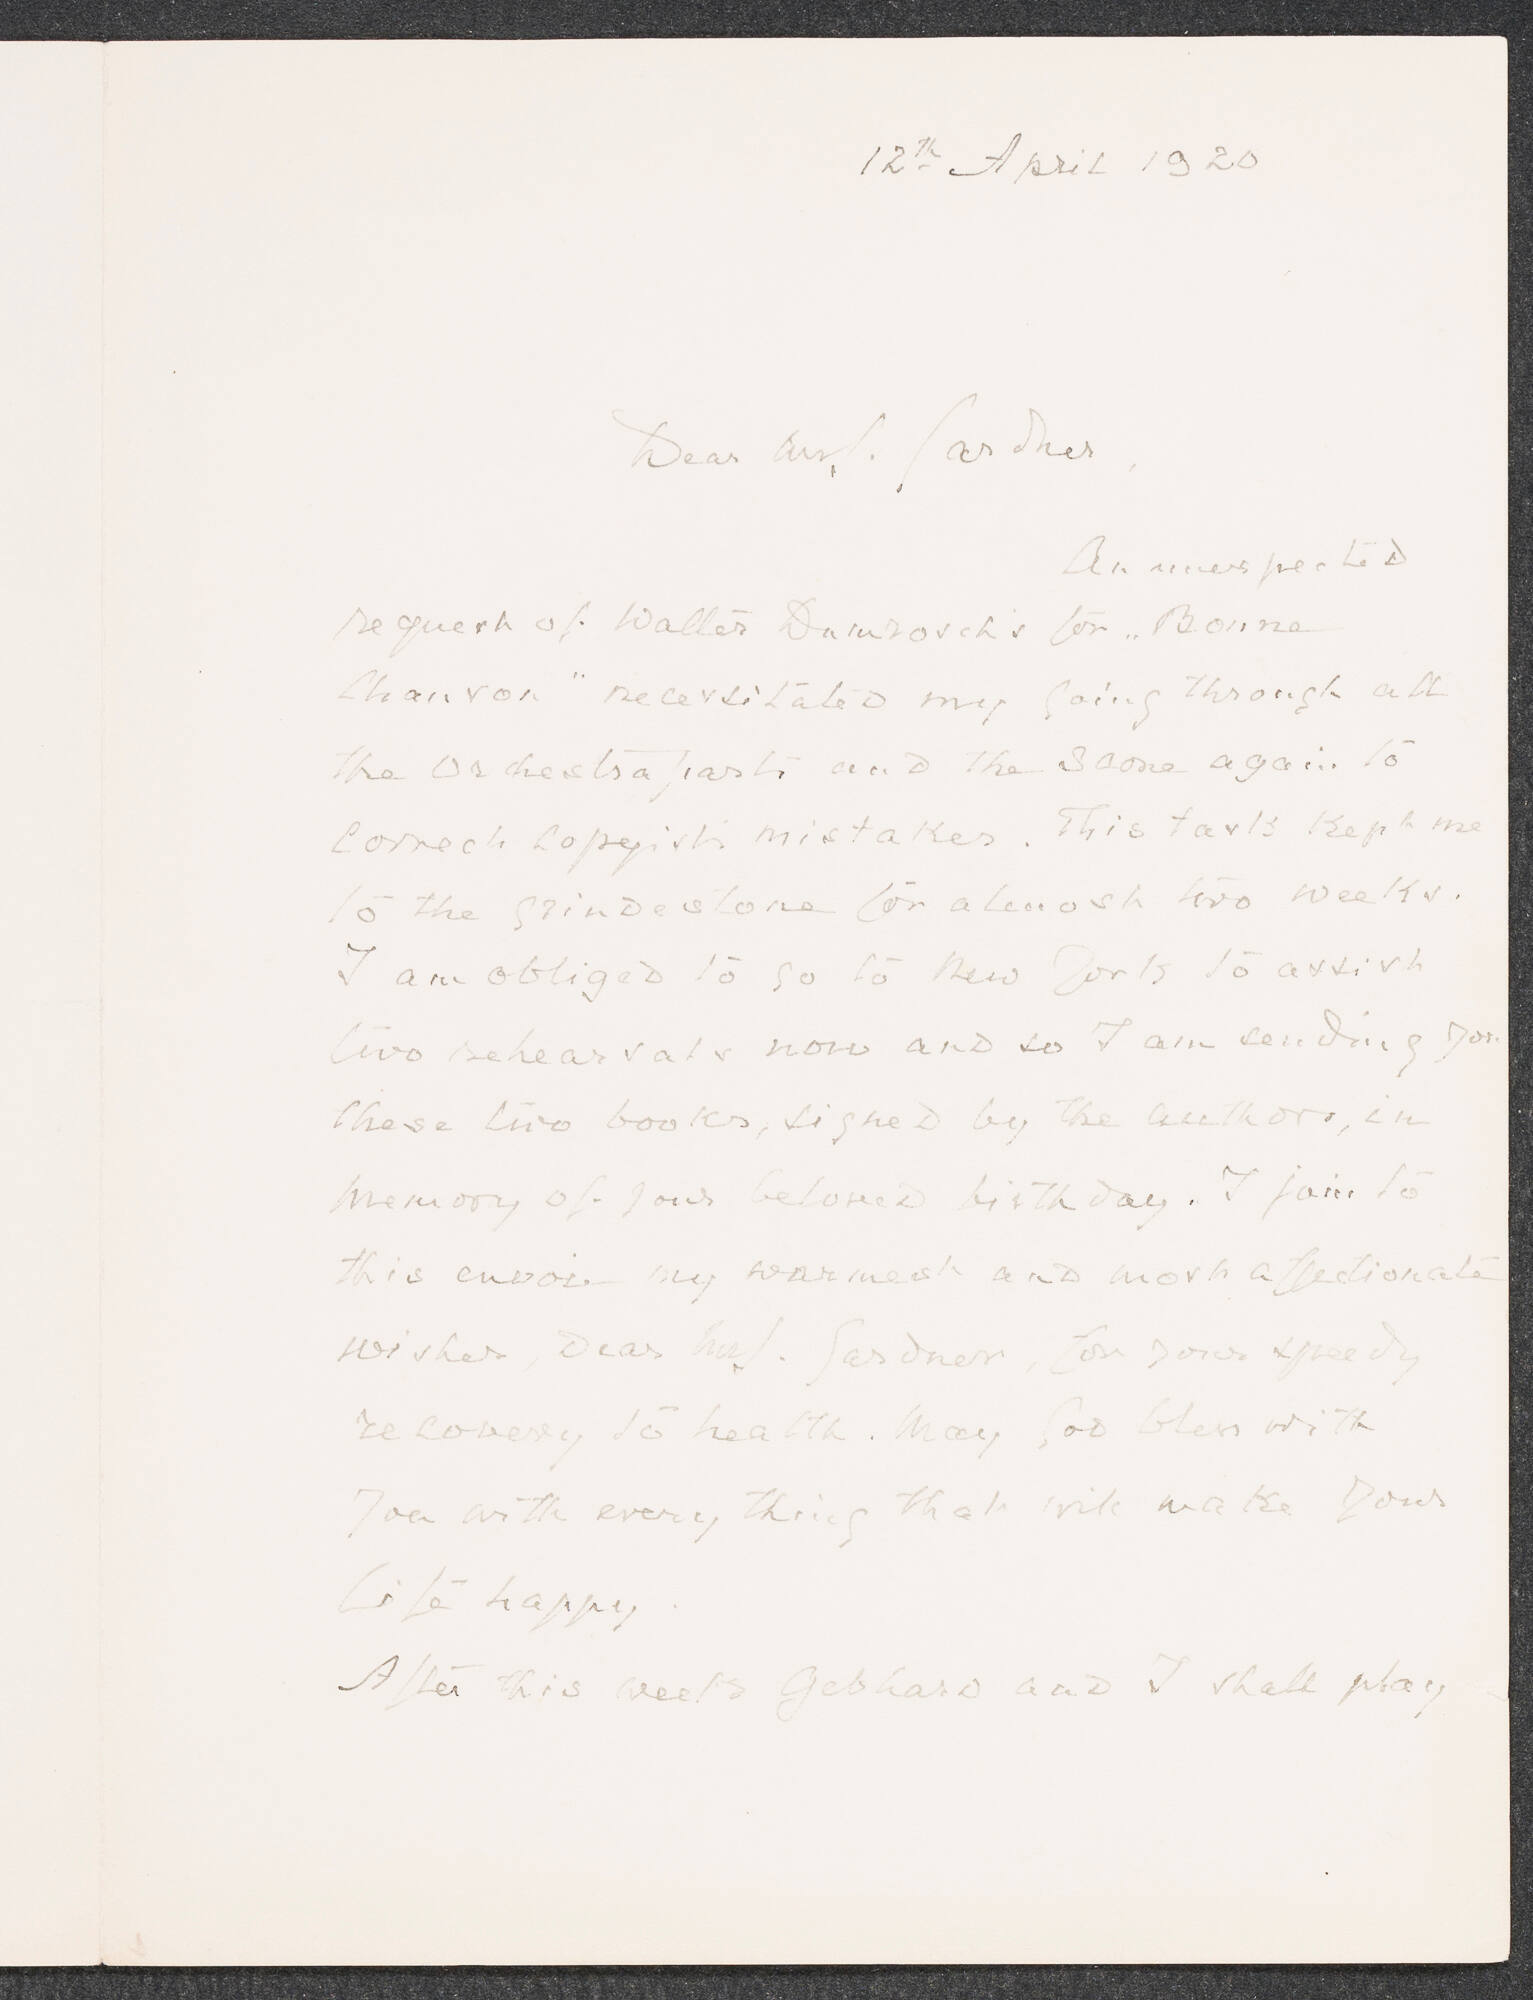 12th April 1920
Dear Mrs. Gardner,
An unexpected
request of Walter Damrosch's for „Bonne
Chanson" necessitated my going through all
the Orchestra parts and the Score again to
correct copyists mistakes. This task kept me
to the grindestone for almost two weeks.
I am obliged to go to New York to assist
two rehearsals now and so I am sending you
these two books, signed by the authors, in
memory of your beloved birthday. I join to
this envoie my warmest and most affectionate
wishes, Dear Mrs. Gardner, for your speedy
recovery to health. May God bless with
you with every thing that will make your
life happy.
After this week Gebhard and I shall play